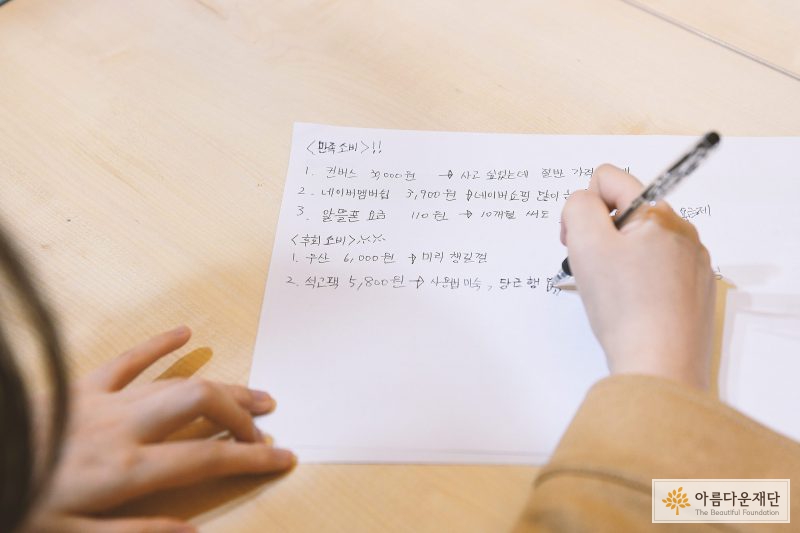 <만족소비>!!
1. 컨버스 39,000원 → 사고 싶었는데 절반 가격
2. 네이버멤버쉽 3,900원 → 네이버쇼핑 많이
3. 알뜰폰 요금 110원 → 10개월 써도 요금제
<후회 소비>
1. 우산 6,000원 → 미리 챙길걸
2. 석고팩 5,800원 → 사용법 미숙, 당근행
아름다운재단
The Beautiful Foundation